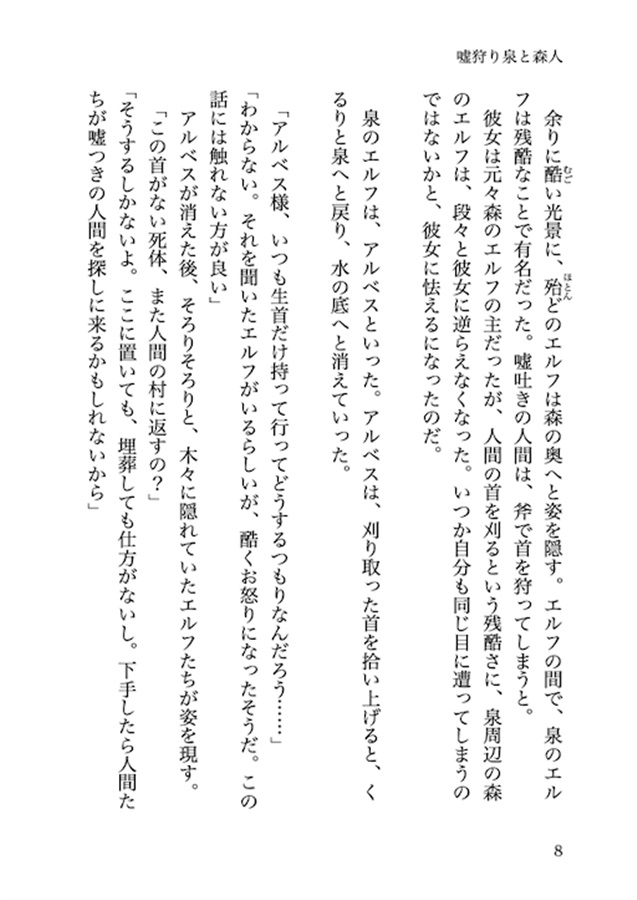 嘘狩り泉と森人
余りに酷い光景に、殆どのエルフは森の奥へと姿を隠す。エルフの間で、泉のエル
むご
ほとん
フは残酷なことで有名だった。嘘吐きの人間は、斧で首を狩ってしまうと。
彼女は元々森のエルフの主だったが、人間の首を刈るという残酷さに、泉周辺の森
のエルフは、段々と彼女に逆らえなくなった。いつか自分も同じ目に遭ってしまうの
ではないかと、彼女に怯えるになったのだ。
泉のエルフは、アルベスといった。アルベスは、刈り取った首を拾い上げると、く
るりと泉へと戻り、水の底へと消えていった。
「アルベス様、いつも生首だけ持って行ってどうするつもりなんだろう……」
「わからない。それを聞いたエルフがいるらしいが、酷くお怒りになったそうだ。この
話には触れない方が良い」
アルベスが消えた後、そろりそろりと、木々に隠れていたエルフたちが姿を現す。
「この首がない死体、また人間の村に返すの？」
「そうするしかないよ。ここに置いても、埋葬しても仕方がないし。下手したら人間た
ちが嘘つきの人間を探しに来るかもしれないから」
8